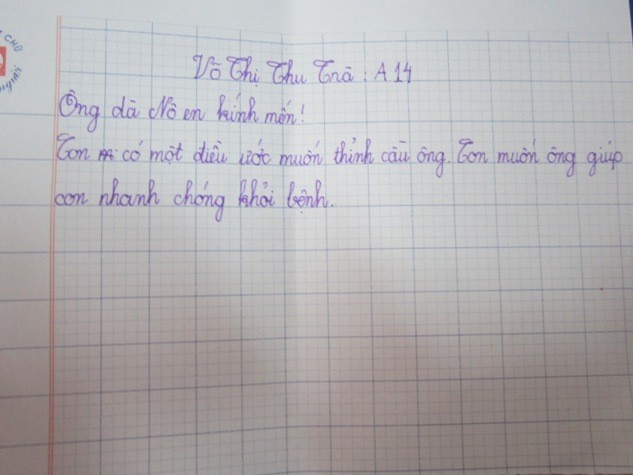 CHỢ
Võ Thị Thu Trà : A 14
Ông dà Nô en kính mến!
Con có một điều ước muốn thỉnh cầu ông. Con muốn ông giúp
con nhanh chóng khỏi bệnh.